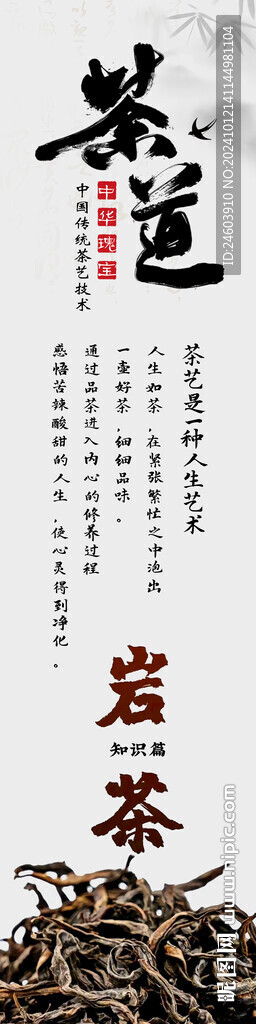 茶道
中华瑰宝
中国传统茶艺技术
茶艺是一种人生艺术
人生如茶,在紧张繁忙之中泡出
一壶好茶,细细品味。
通过品茶进入内心的修养过程
感悟苦辣酸甜的人生,使心灵得到净化。
岩茶
知识篇
昵图网 www.nipic.com
ID:24603910 NO:20241012141144981104